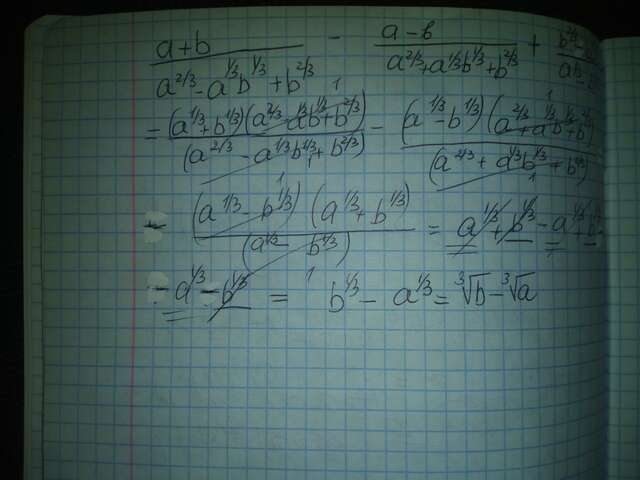 (a+b)/(a^2/3 - a^1/3 b^1/3 + b^2/3) - (a-b)/(a^2/3 + a^1/3 b^1/3 + b^2/3) +
= (a^1/3 + b^1/3)(a^2/3 - a^1/3 b^1/3 + b^2/3)/(a^2/3 - a^1/3 b^1/3 + b^2/3) - (a^1/3 - b^1/3)(a^2/3 + a^1/3 b^1/3 + b^2/3)/(a^2/3 + a^1/3 b^1/3 + b^2/3)
- (a^1/3 - b^1/3)(a^1/3 + b^1/3)/(a^1/3 - b^1/3) = a^1/3 + b^1/3 - a^1/3 + b
- a^1/3 - b^1/3 = b^1/3 - a^1/3 = ∛b - ∛a